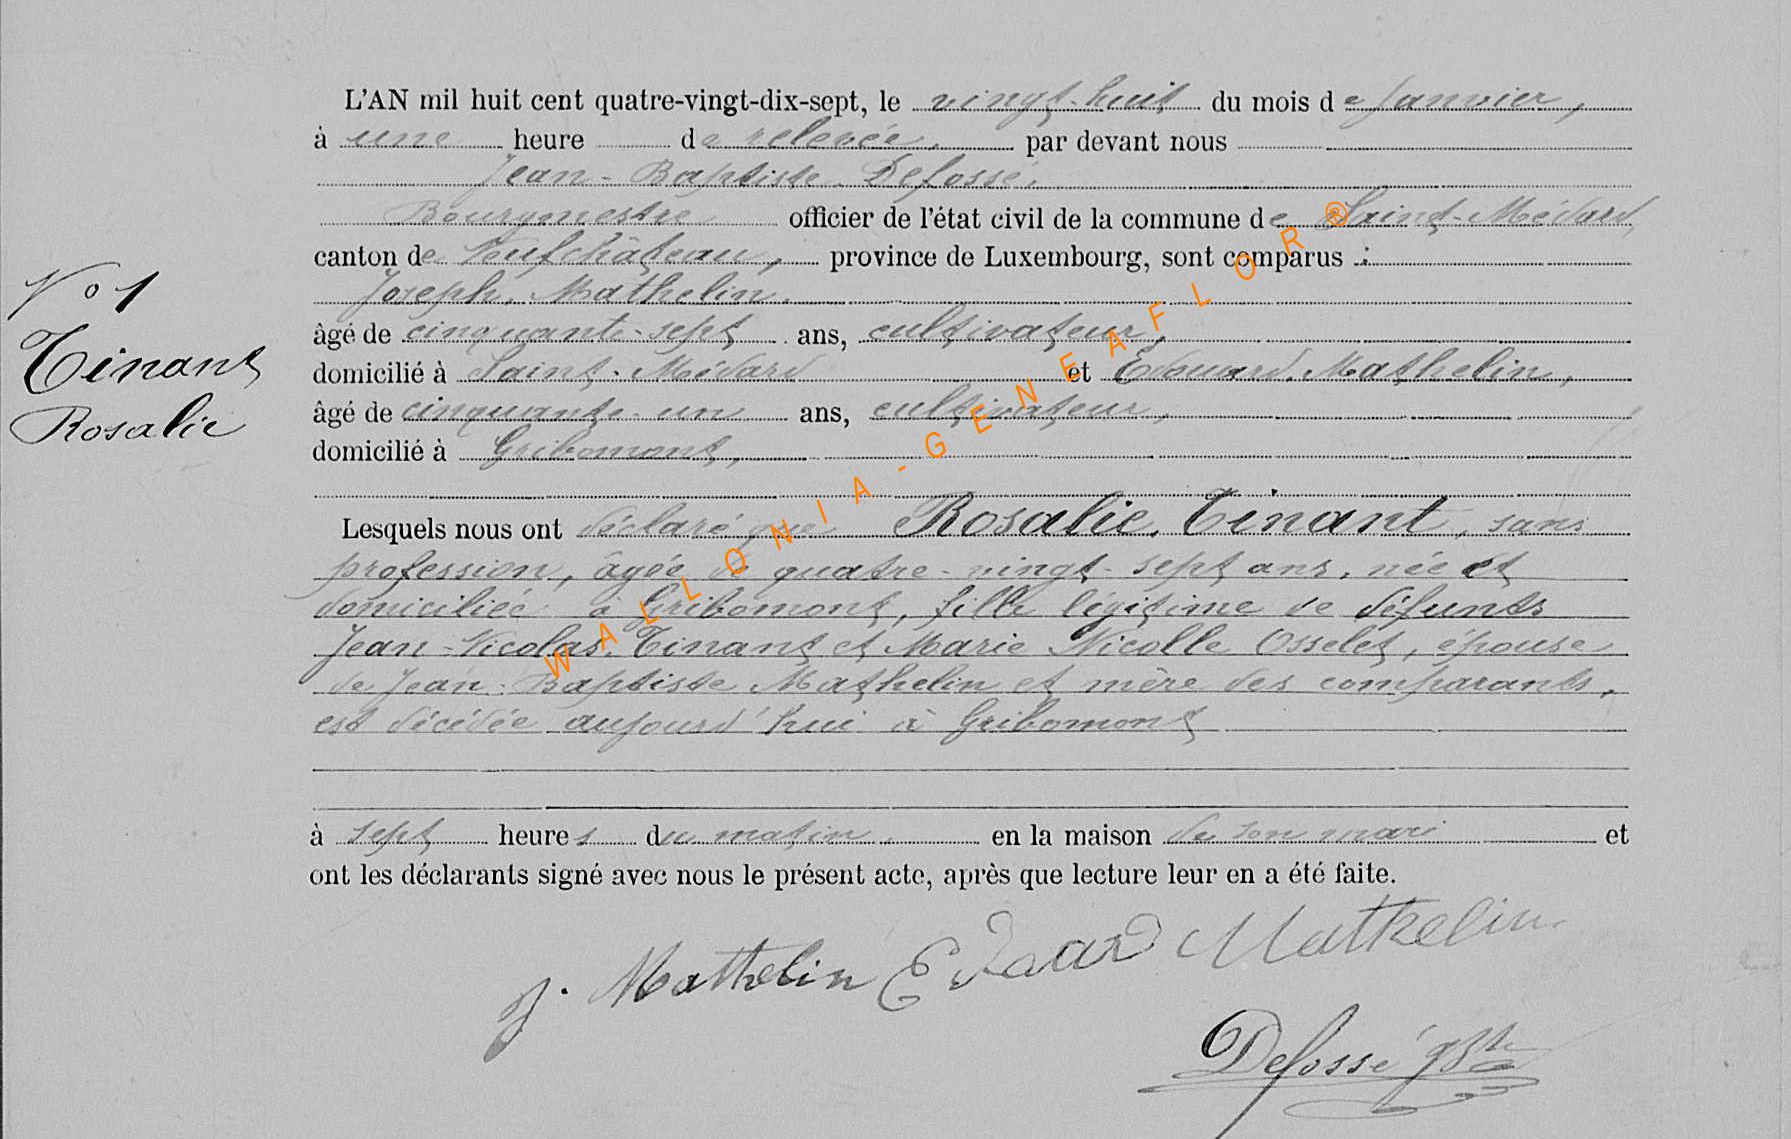 L'AN mil huit cent quatre-vingt-dix-sept, le vingt-huit du mois de Janvier,
à une heure de relevée, par devant nous
Jean-Baptiste Defossé,
Bourgmestre officier de l'état civil de la commune de Saint-Médard,
canton de Neufchâteau, province de Luxembourg, sont comparus :
Joseph Mathelin,
âgé de cinquante-sept ans, cultivateur,
domicilié à Saint-Médard et Edouard Mathelin,
âgé de cinquante-un ans, cultivateur,
domicilié à Gribomont,
N° 1
Tinant
Rosalie
Lesquels nous ont déclaré que Rosalie Tinant, sans
profession, âgée de quatre-vingt-sept ans, née et
domiciliée à Gribomont, fille légitime de défunts
Jean-Nicolas Tinant et Marie Nicolle Osselet, épouse
de Jean-Baptiste Mathelin et mère des comparants,
est décédée aujourd'hui à Gribomont
à sept heures du matin, en la maison de son mari et
ont les déclarants signé avec nous le présent acte, après que lecture leur en a été faite.
J. Mathelin Edaard Mathelin
Defossé JBte
WALLONIA-GENEAFLOR®